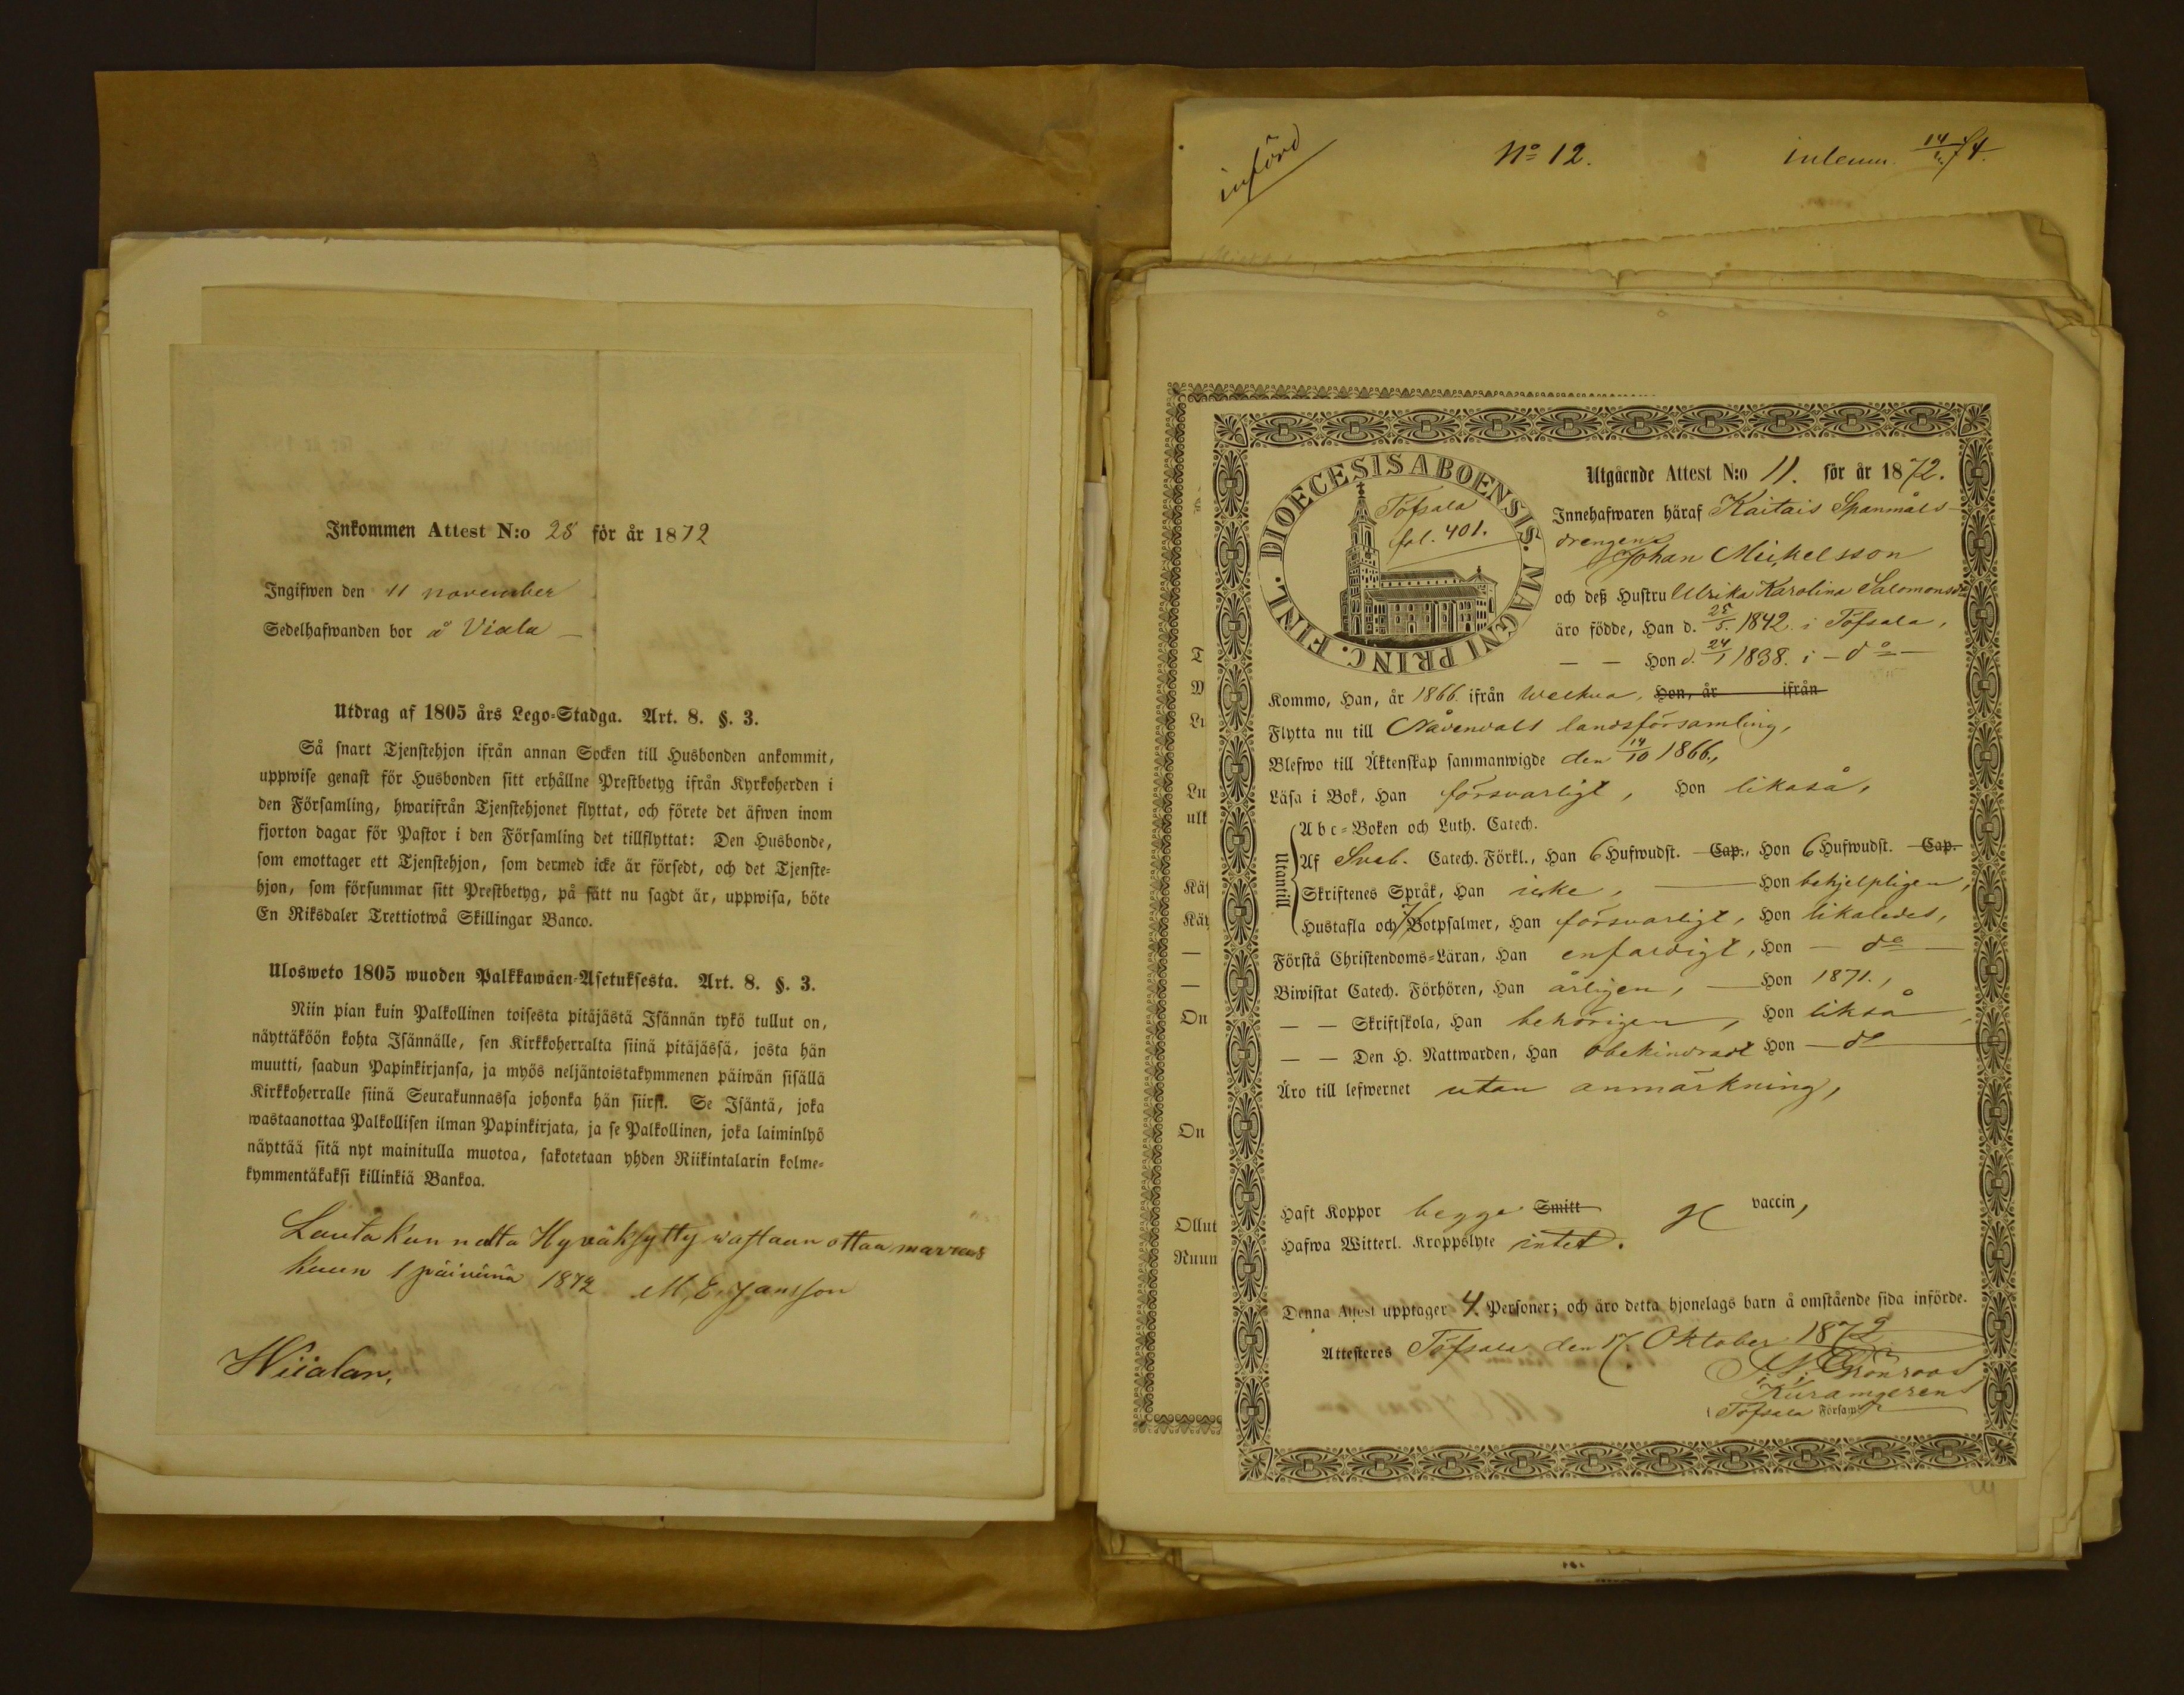 Inkommen Attest N:o 28 för år 1872
Ingifwen den 11 november
Sedelhafwanden bor å Viala —
Utdrag af 1805 års Lego-Stadga. Art. 8. §. 3.
Så snart Tjenstehjon ifrån annan Socken till Husbonden ankommit,
uppwise genast för Husbonden sitt erhållne Prestbetyg ifrån Kyrkoherden i
den Församling, hwarifrån Tjenstehjonet flyttat, och förete det äfwen inom
fjorton dagar för Pastor i den Församling det tillflyttat: Den Husbonde,
som emottager ett Tjenstehjon, som dermed icke är försedt, och det Tjenste-
hjon, som försummar sitt Prestbetyg, på sätt nu sagdt är, uppwisa, böte
En Riksdaler Trettiotwå Skillingar Banco.
Ulosweto 1805 wuoden Palkkawäen-Asetuksesta. Art. 8. §. 3.
Niin pian kuin Palkollinen toisesta pitäjästä Isännän tykö tullut on,
näyttäköön kohta Isännälle, sen Kirkkoherralta siinä pitäjässä, josta hän
muutti, saadun Papinkirjansa, ja myös neljäntoistakymmenen päiwän sisällä
Kirkkoherralle siinä Seurakunnassa johonka hän siirst. Se Isäntä, joka
wastaanottaa Palkollisen ilman Papinkirjata, ja se Palkollinen, joka laiminlyö
näyttää sitä nyt mainitulla muotoa, sakotetaan yhden Riikintalarin kolme-
kymmentäkaksi killinkiä Bankoa.
Lautakunnalta Hyväksytty wastaan ottaa marras
kuun 1 päivänä 1872 M, E, Jansson
Wiialan,
införd
No 12.
inlemn. 14/4.
DIOECESIS ABOENSIS. MAGNI PRINC. FINL.
Töfsala
fol. 401.
Utgående Attest N:o 11. för år 1872.
Innehafwaren häraf Kaitais Spanmåls-
drengen Johan Michelsson
och deß Hustru Ulrika Karolina Salomonsdr
äro födde, Han d. 25/5. 1842. i Töfsala,
— — Hon d. 24/1 1838. i — do —
Kommo, Han, år 1866. ifrån Wechua, Hon, år ifrån
Flytta nu till Nådendals landsförsamling,
Blefwo till Äktenskap sammanwigde den 14/10 1866.,
Läsa i Bok, Han försvarligt, Hon likaså,
Utantill
Abc-Boken och Luth. Catech.
Af Sveb. Catech. Förkl., Han 6 Hufwudst. Cap., Hon 6 Hufwudst. Cap.
Skriftenes Språk, Han icke, Hon behjelpligen,
Hustafla och 7 Botpsalmer, Han försvarligt, Hon likaledes,
Förstå Christendoms-Läran, Han enfaldigt, Hon — do —
Biwistat Catech. Förhören, Han årligen, — Hon 1871.,
— — Skriftskola, Han behörigen, Hon likså,
— — Den H. Nattwarden, Han obehindradt Hon — do
Äro till lefwernet utan anmärkning,
Haft Koppor begge Smitt vaccin,
Hafwa Witterl. Kroppslyte intet.
Denna Attest upptager 4. Personer; och äro detta hjonelags barn å omstående sida införde.
Attesteres Töfsala den 17. Oktober 1872
Grönroos
Töfsala Församl.
Lu
Lu
ulk
On
On
Ollut